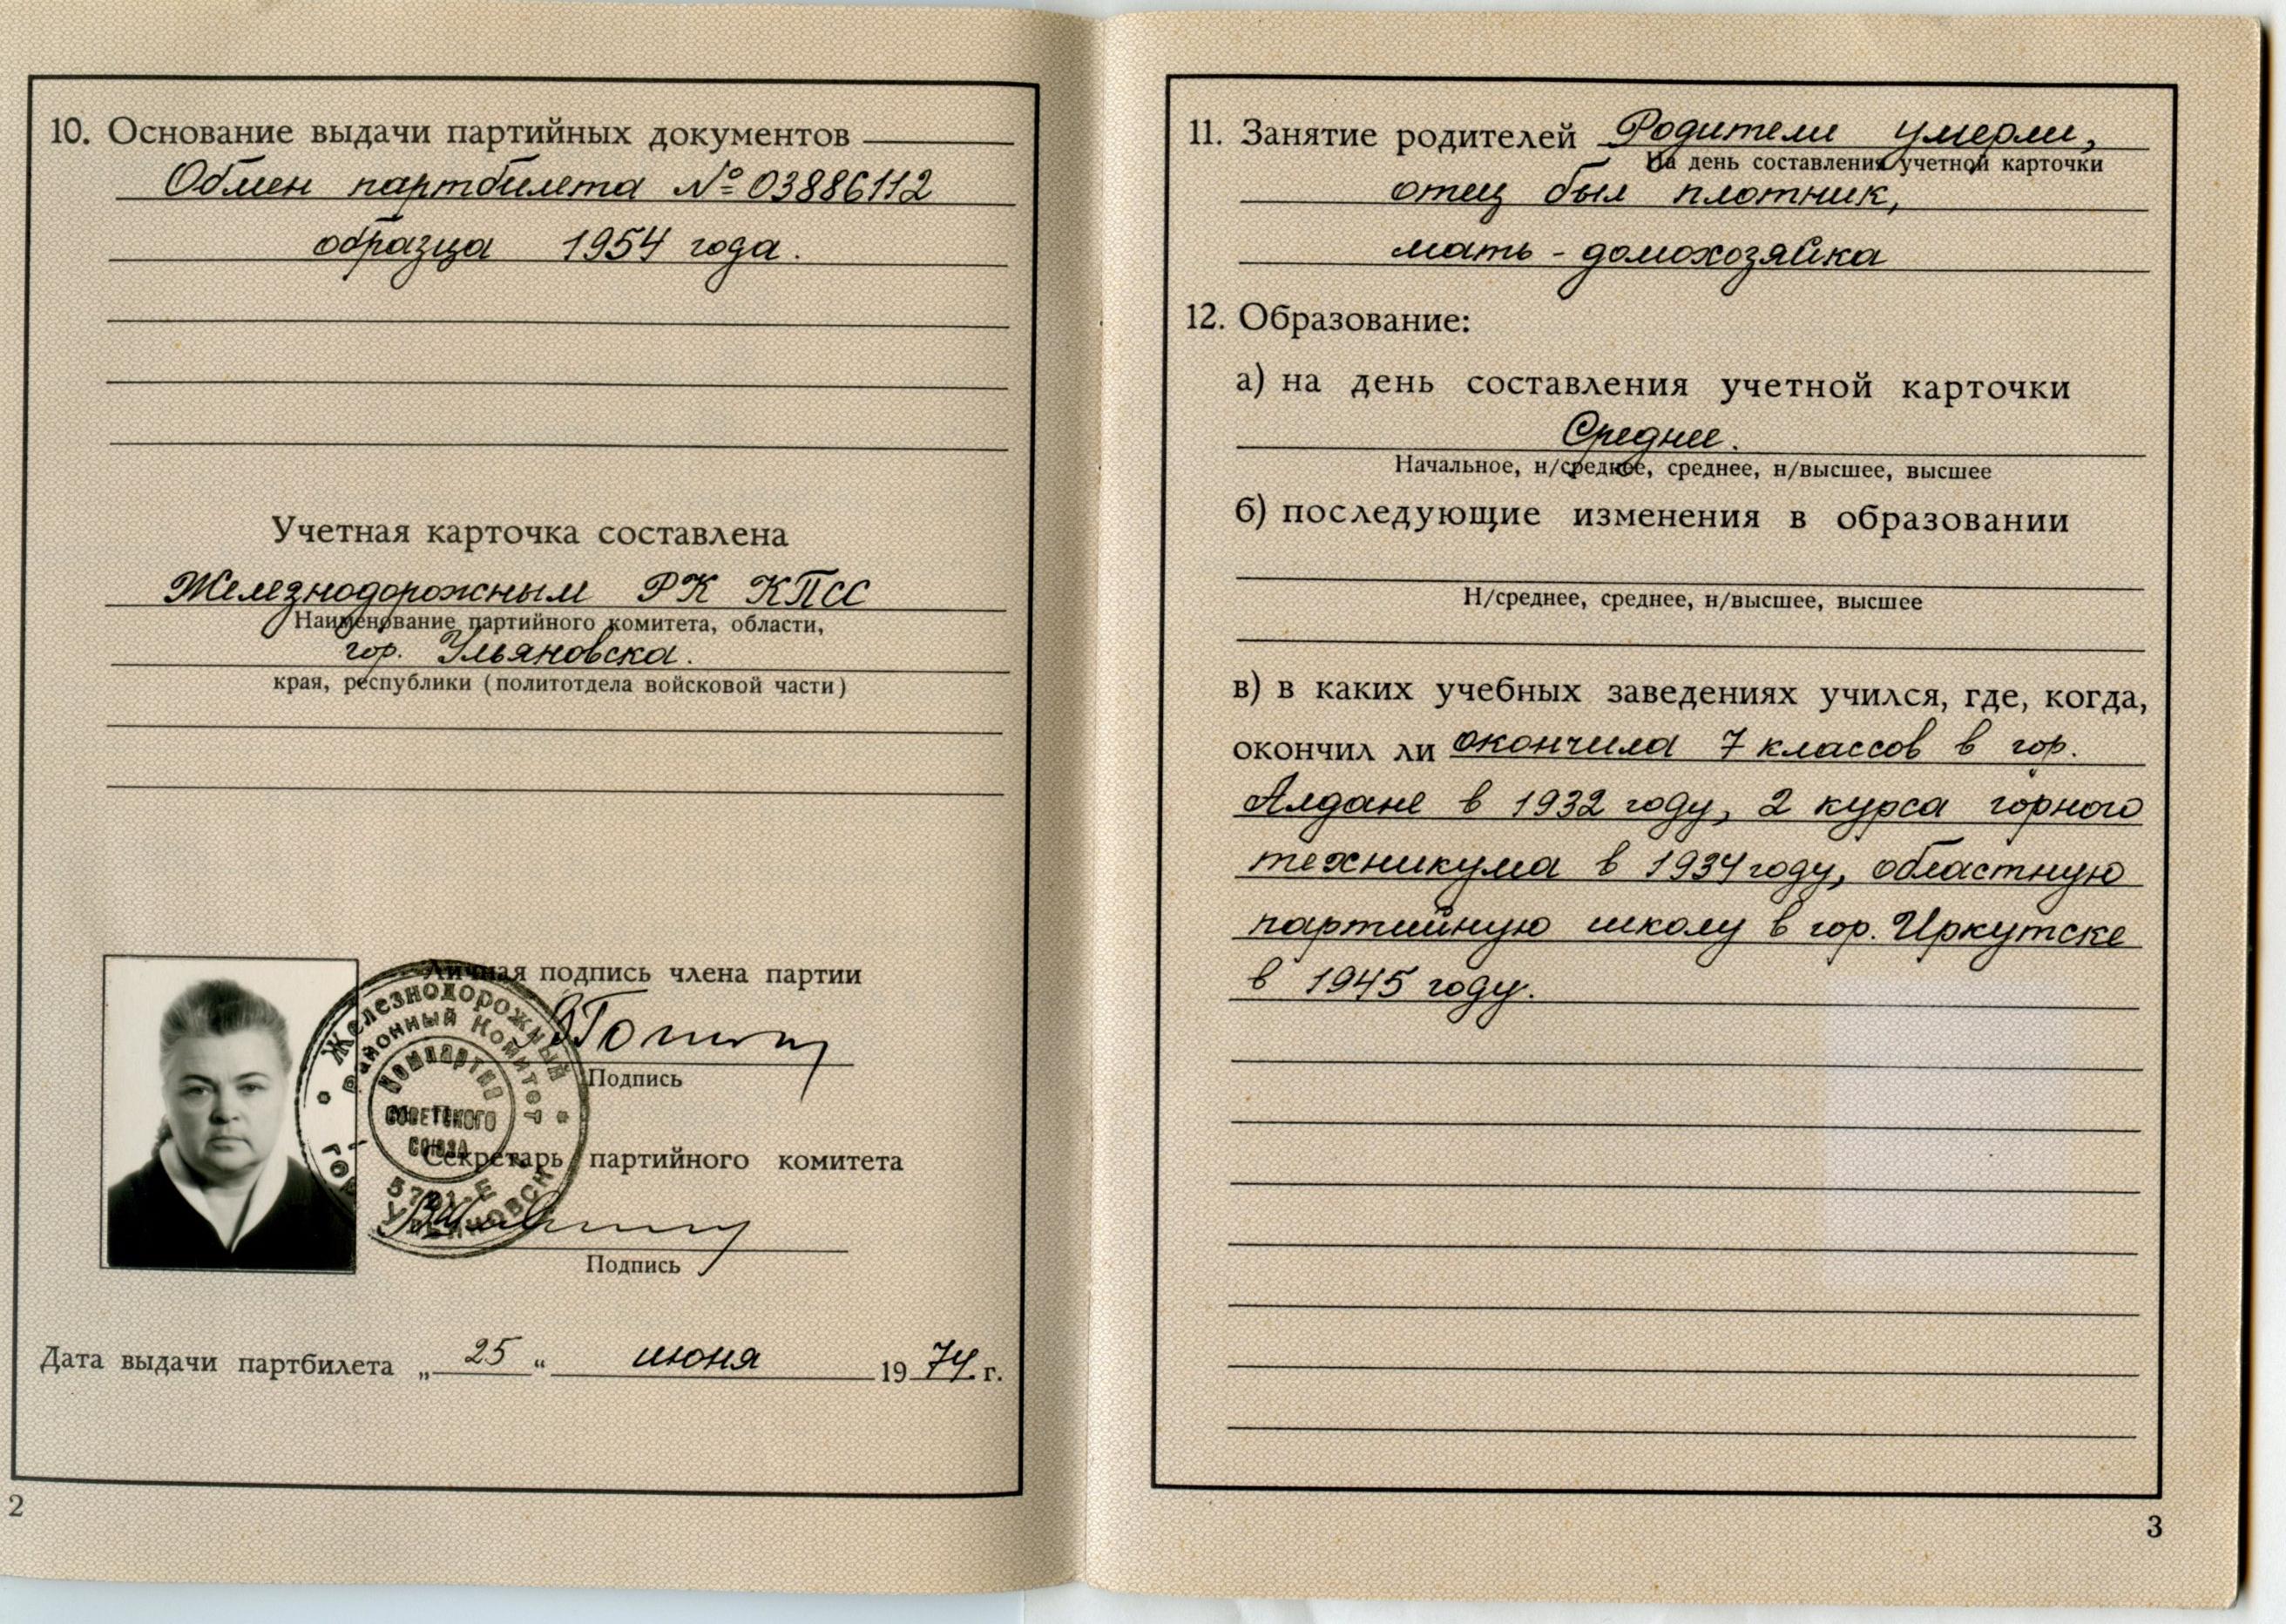 10. Основание выдачи партийных документов
Обмен партбилета № 03886112
образца 1954 года.
Учетная карточка составлена
Железнодорожным РК КПСС
Наименование партийного комитета, области,
гор. Ульяновска.
края, республики (политотдела войсковой части)
Личная подпись члена партии
Подпись
Железнодорожный
Районный Комитет
Компартия
Советского
Союза
Секретарь партийного комитета
Подпись
Дата выдачи партбилета „ 25 “ июня 19 74 г.
2
11. Занятие родителей Родители умерли,
На день составления учетной карточки
отец был плотник,
мать - домохозяйка
12. Образование:
а) на день составления учетной карточки
Среднее.
Начальное, н/среднее, среднее, н/высшее, высшее
б) последующие изменения в образовании
Н/среднее, среднее, н/высшее, высшее
в) в каких учебных заведениях учился, где, когда,
окончил ли окончила 7 классов в гор.
Алдане в 1932 году, 2 курса горного
техникума в 1934 году, областную
партийную школу в гор. Иркутске
в 1945 году.
3